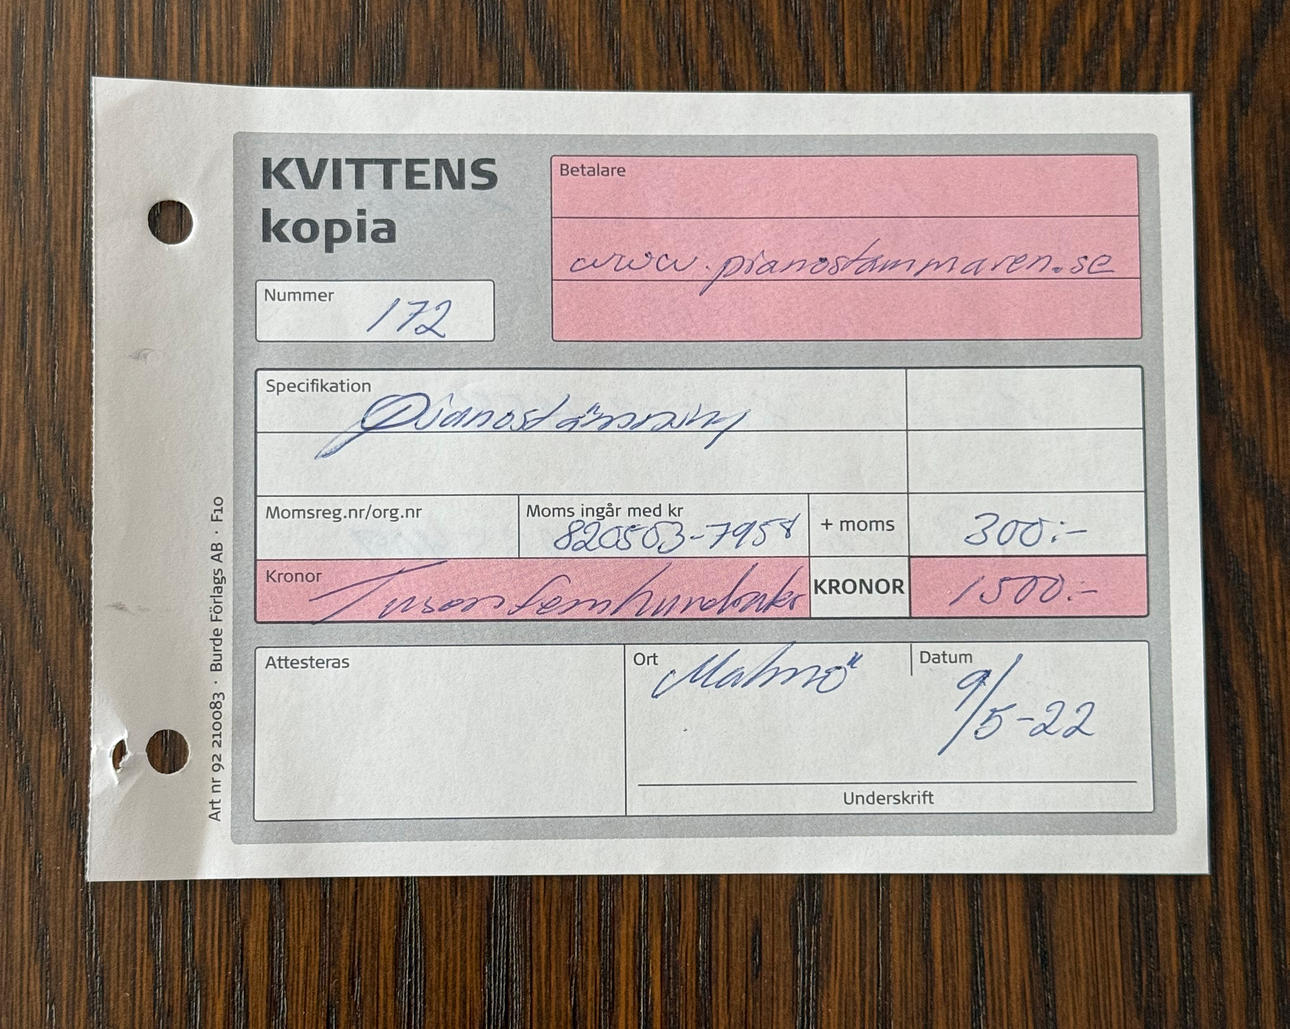 KVITTENS
kopia
Betalare
www.pianostammaren.se
Nummer
172
Specifikation
Pianostämning
Momsreg.nr/org.nr
Moms ingår med kr
820503-7958
+ moms
300:-
Kronor
Tusenfemhundrakr
KRONOR
1500:-
Attesteras
Ort
Malmö
Datum
9/5-22
Underskrift
Art nr 92 210083 · Burde Förlags AB · F10